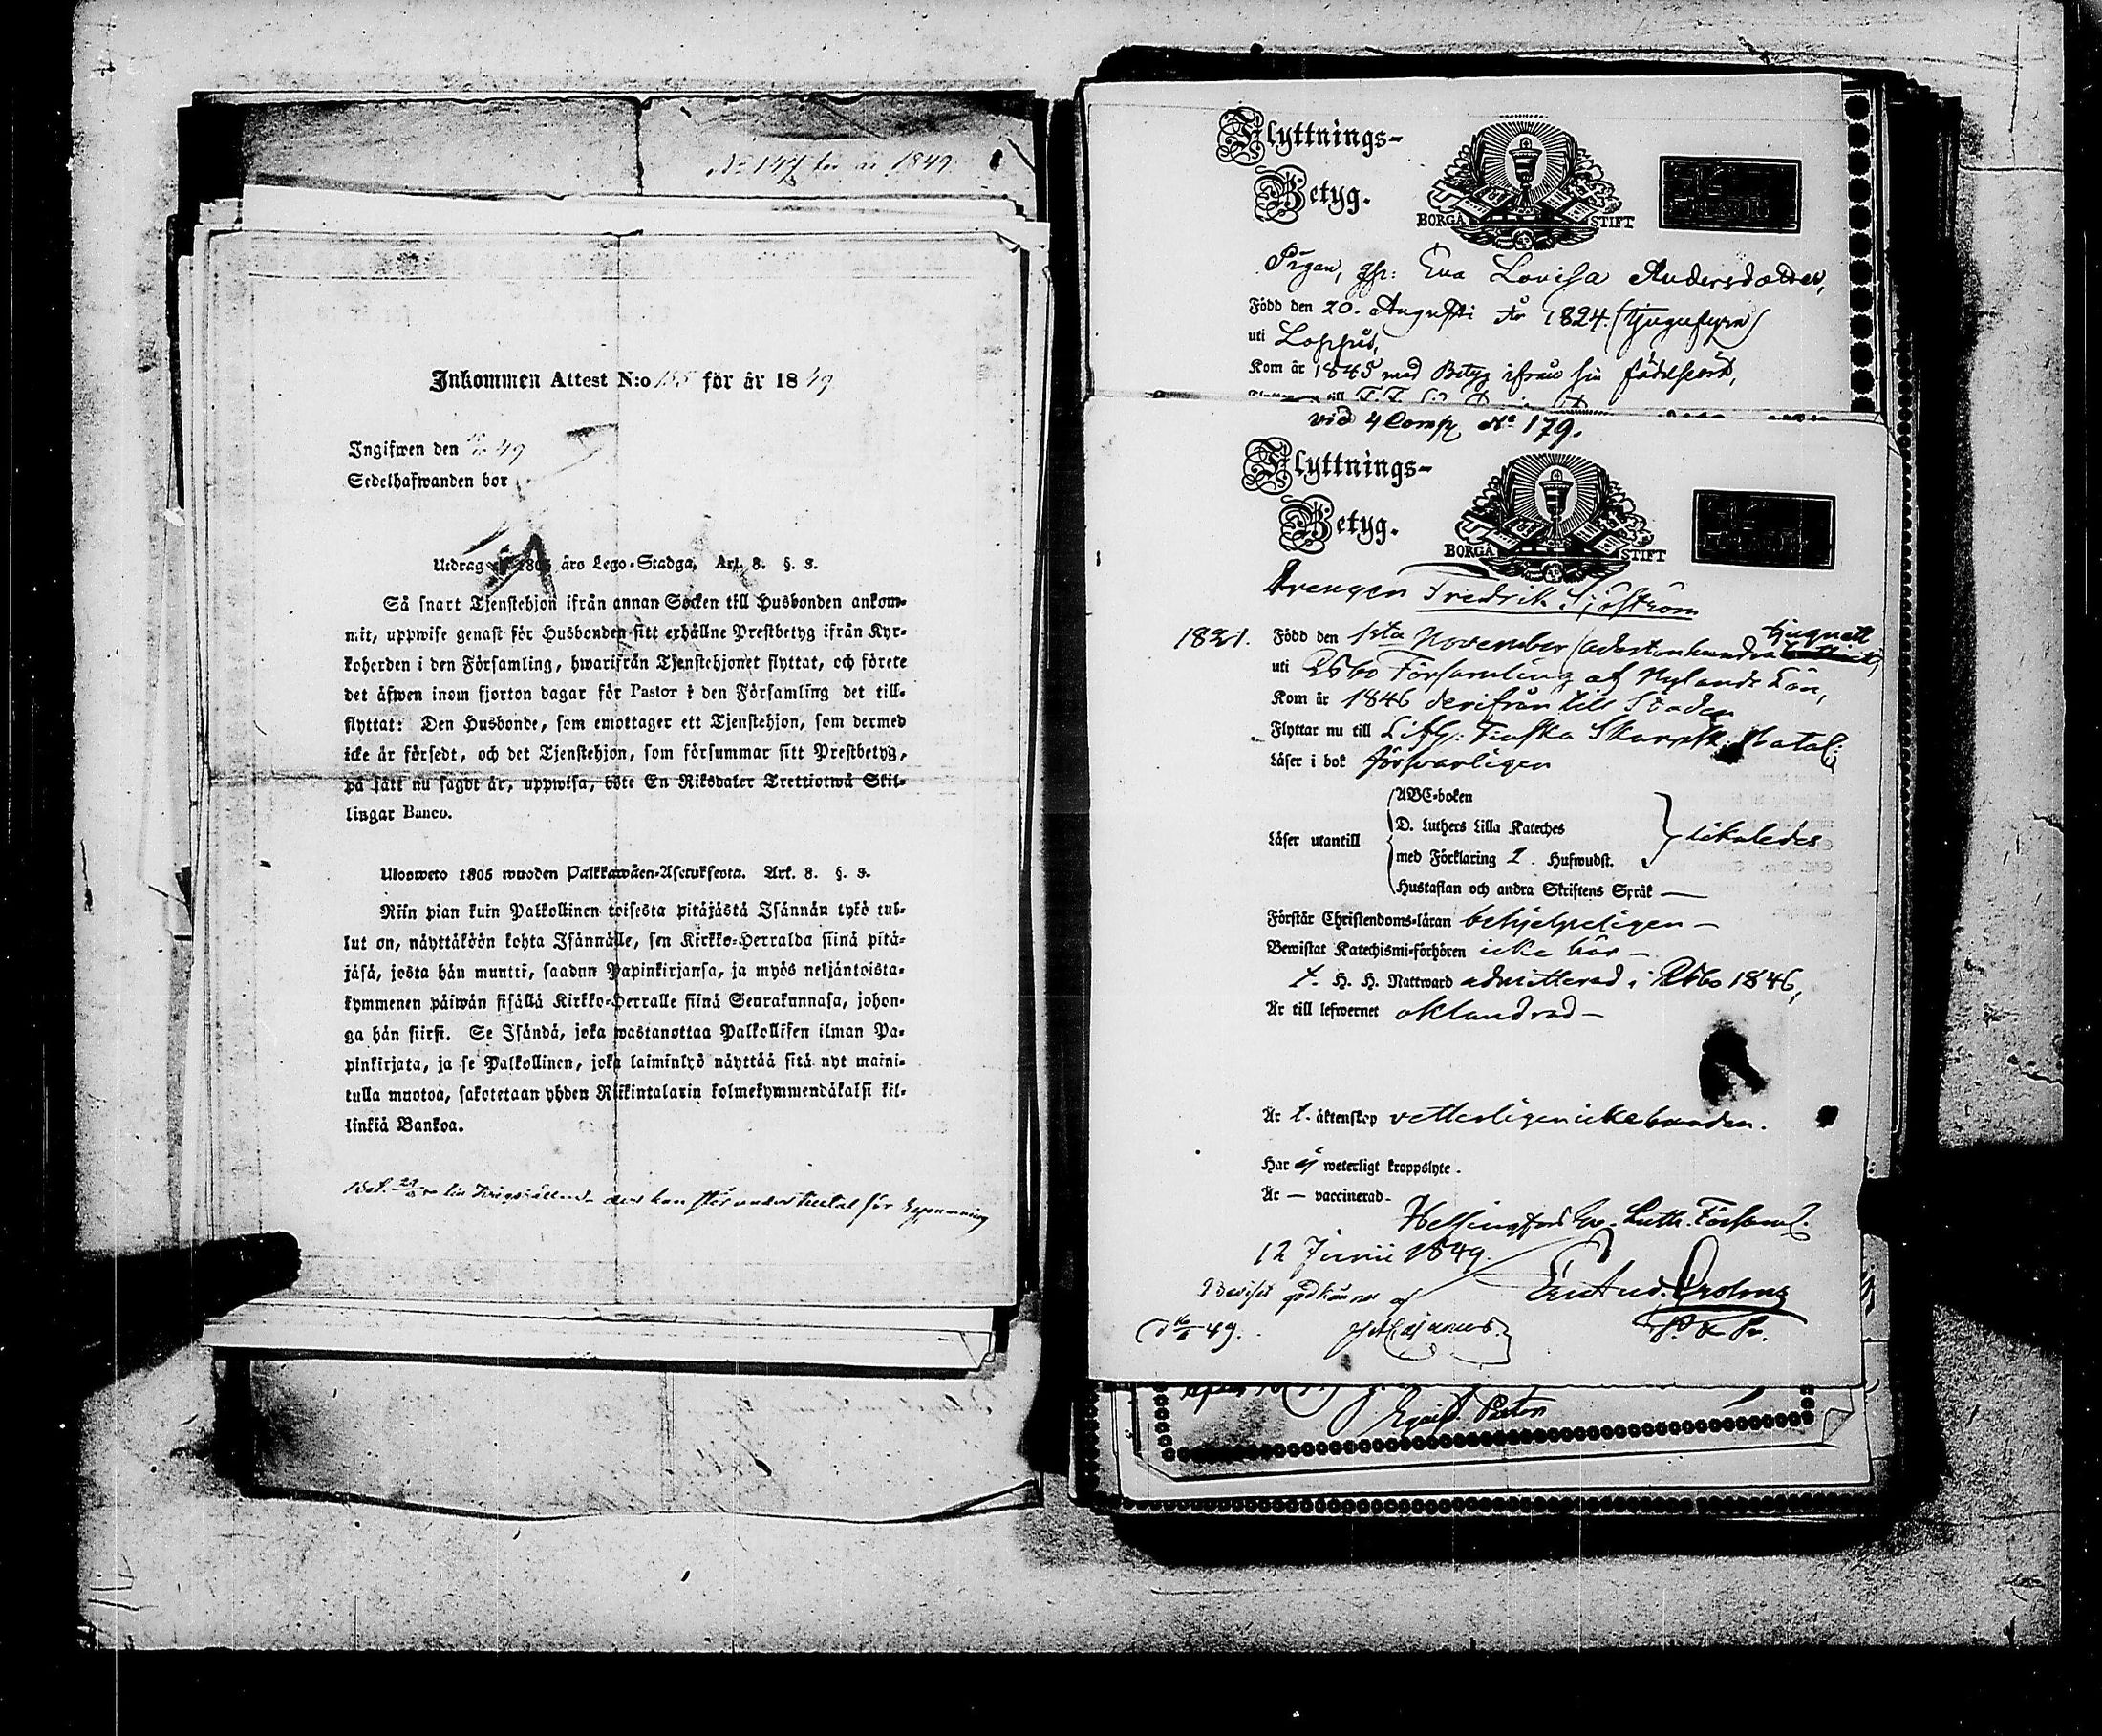 No 147 för år 1849
Inkommen Attest N:o 155 för år 1849
Ingifwen den 49
Sedelhafwanden bor
Utdrag af 1805 års Lego-Stadga. Art. 8. §. 3.
Så snart Tjenstehjon ifrån annan Socken till Husbonden ankom-
mit, uppwise genast för Husbonden sitt erhållne Prestbetyg ifrån Kyr-
koherden i den Församling, hwarifrån Tjenstehjonet flyttat, och förete
det äfwen inom fjorton dagar för Pastor i den Församling det till-
flyttat: Den Husbonde, som emottager ett Tjenstehjon, som dermed
icke är försedt, och det Tjenstehjon, som försummar sitt Prestbetyg,
på sätt nu sagdt är, uppwisa, böte En Riksdaler Trettiotwå Skil-
lingar Banco.
Ulosweto 1805 wuoden Palkkawäen-Asetuksesta. Art. 8. §. 3.
Niin pian kuin Palkollinen toisesta pitäjästä Isännän tykö tul-
lut on, näyttäköön kohta Isännälle, sen Kirkko-Herralda siinä pitä-
jäsä, josta hän muutti, saadun Papinkirjansa, ja myös neljäntoista-
kymmenen päiwän sisällä Kirkko-Herralle siinä Seurakunnasa, johon-
ga hän siirsi. Se Isändä, joka wastanottaa Palkollisen ilman Pa-
pinkirjata, ja se Palkollinen, joka laiminlyö näyttää sitä nyt maini-
tulla muotoa, sakotetaan yhden Riikintalarin kolmekymmendäkaksi kil-
linkiä Bankoa.
Flyttnings-
Betyg.
BORGÅ STIFT
Pigan, Eva Lovisa Andersdotter,
Född den 20. Augusti År 1824. (tjugufyra)
uti Loppis,
Kom år 1845 med Betyg ifrån sin födelseort,
vid 4 Comp No 179.
Flyttnings-
Betyg.
BORGÅ STIFT
Drengen Fredrik Sjöström
1821. Född den 1sta November (adertonhundra tjuguett
uti Esbo Församling af Nylands Län,
Kom år 1846 derifrån till Staden
Flyttar nu till Lifg: Finska Skarpsk. Batal:
Läser i bok försvarligen
ABC-boken
D. Luthers Lilla Kateches
Läser utantill
likaledes
med Förklaring 2. Hufwudst.
Hustaflan och andra Skriftens Språk —
Förstår Christendoms-läran behjelpeligen —
Bewistat Katechismi-förhören icke här —
t. H. H. Nattward admitterad i Esbo 1846,
Är till lefwernet oklandrad —
Är t. äktenskap vetterligen icke bunden.
Har ej weterligt kroppslyte.
Är — vaccinerad.
Helsingfors Ev. Luth. Församl.
12 Junii 1849.
Beviset godkännes af
49.